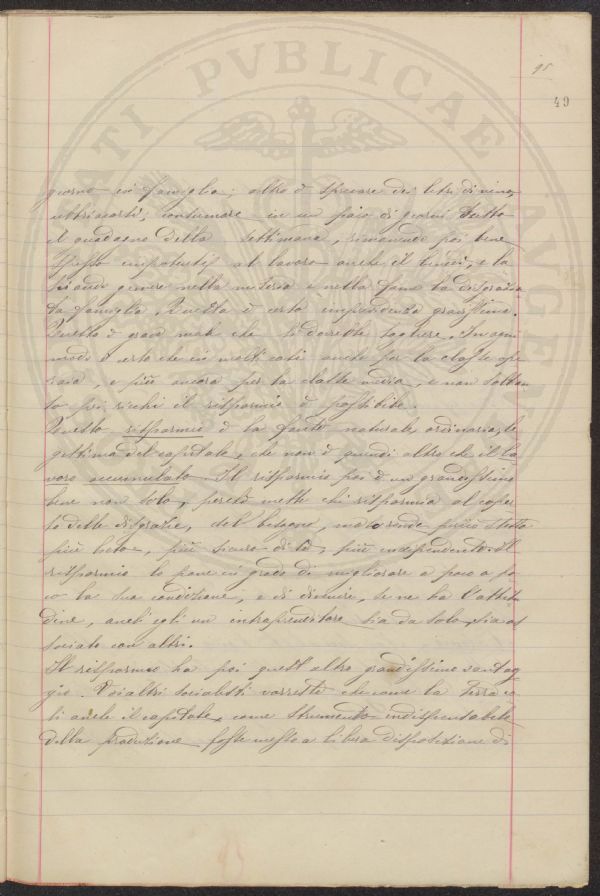 95
49
giorno in famiglia; altro è sprecare dei litri di vino,
ubbriacarsi, consumare in un paio di giorni tutto
il guadagno della settimana, rimanendo poi bene
spesso impotenti al lavoro anche il lunedì, e la
sciando gemere nella miseria e nella fame la disgrazia
ta famiglia. Questa è certo imprudenza gravissima.
Questo è grave male che si dovrebbe togliere. In ogni
modo è certo che in molti casi anche per la classe ope
raia, e più ancora per la classe media, e non soltan
to pei ricchi il risparmio è possibile.
Questo risparmio è la fonte naturale, ordinaria, le
gittima del capitale, che non è quindi altro che il la
voro accumulato. Il risparmio poi è un grandissimo
bene non solo, perchè mette chi risparmia al coper
to delle disgrazie, del bisogno, ma lo rende più
più lieto, più sicuro di sè, più indipendente. Il
risparmio lo pone in grado di migliorare a poco a po
co la sua condizione, e di divenire, se ne ha l'attitu
dine, anch'egli un intraprenditore sia da solo, sia as
sociato con altri.
Il risparmio ha poi quest'altro grandissimo vantag
gio. Voi altri socialisti vorreste che come la Terra co
sì anche il capitale, come strumento indispensabile
della produzione fosse messo a libera disposizione di